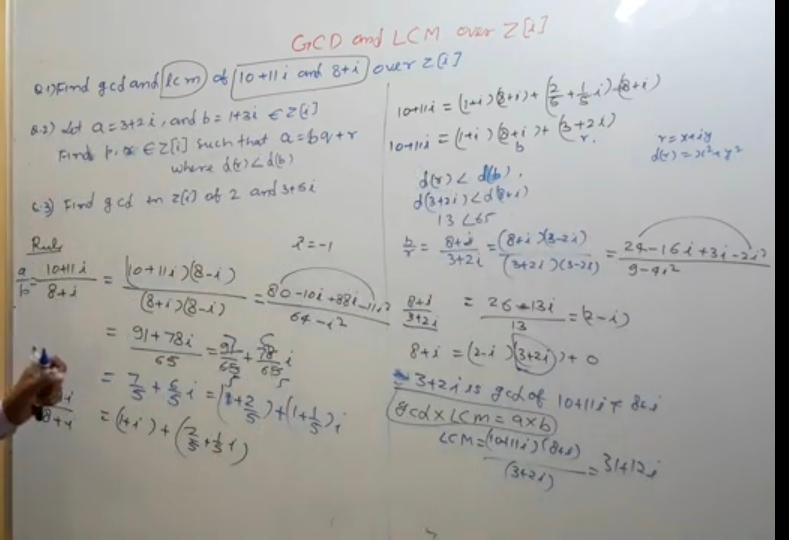 GCD and LCM over Z[i]
Q.1) Find gcd and lcm of 10+11i and 8+i over Z[i]
Q.2) Let a=3+2i, and b=1+3i ∈ Z[i]
Find ∈ Z[i] such that a=bq+r
where d(r)<d(b)
Q.3) Find gcd in Z[i] of 2 and 3+5i
Rule
i²=-1
a/b = 10+11i/8+i = (10+11i)(8-i)/(8+i)(8-i) = 80-10i+88i-11i²/64-i²
= 91+78i/65 = 91/65 + 78/65 i
= 7/5 + 6/5 i = (1+2/5) + (1+1/5)i
= (1+i) + (2/5 + 1/5 i)
10+11i = (1+i)(8+i) + (2/5 + 1/5 i)(8+i)
10+11i = (1+i)(8+i) + (3+2i)
b r.
r=x+iy
d(r)=x²+y²
d(r) < d(b),
d(3+2i)<d(8+i)
13 < 65
b/r = 8+i/3+2i = (8+i)(3-2i)/(3+2i)(3-2i) = 24-16i+3i-2i²/9-4i²
8+i/3+2i = 26-13i/13 = (2-i)
8+i = (2-i)(3+2i) + 0
3+2i is gcd of 10+11i & 8+i
gcd×LCM = a×b
LCM = (10+11i)(8+i)/(3+2i) = 31+12i